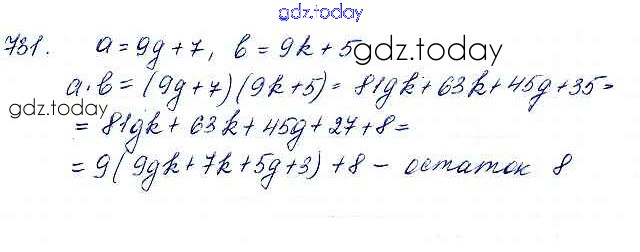 gdz.today
731. a = 9g + 7, b = 9k + 5 gdz.today
a·b = (9g + 7)(9k + 5) = 81gk + 63k + 45g + 35 =
gdz.today
= 81gk + 63k + 45g + 27 + 8 =
= 9(9gk + 7k + 5g + 3) + 8 – остаток 8